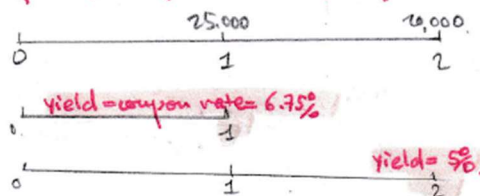 25.000 20,000
0 1 2
yield = coupon rate = 6.75%
0 1
yield = 5%
0 1 2